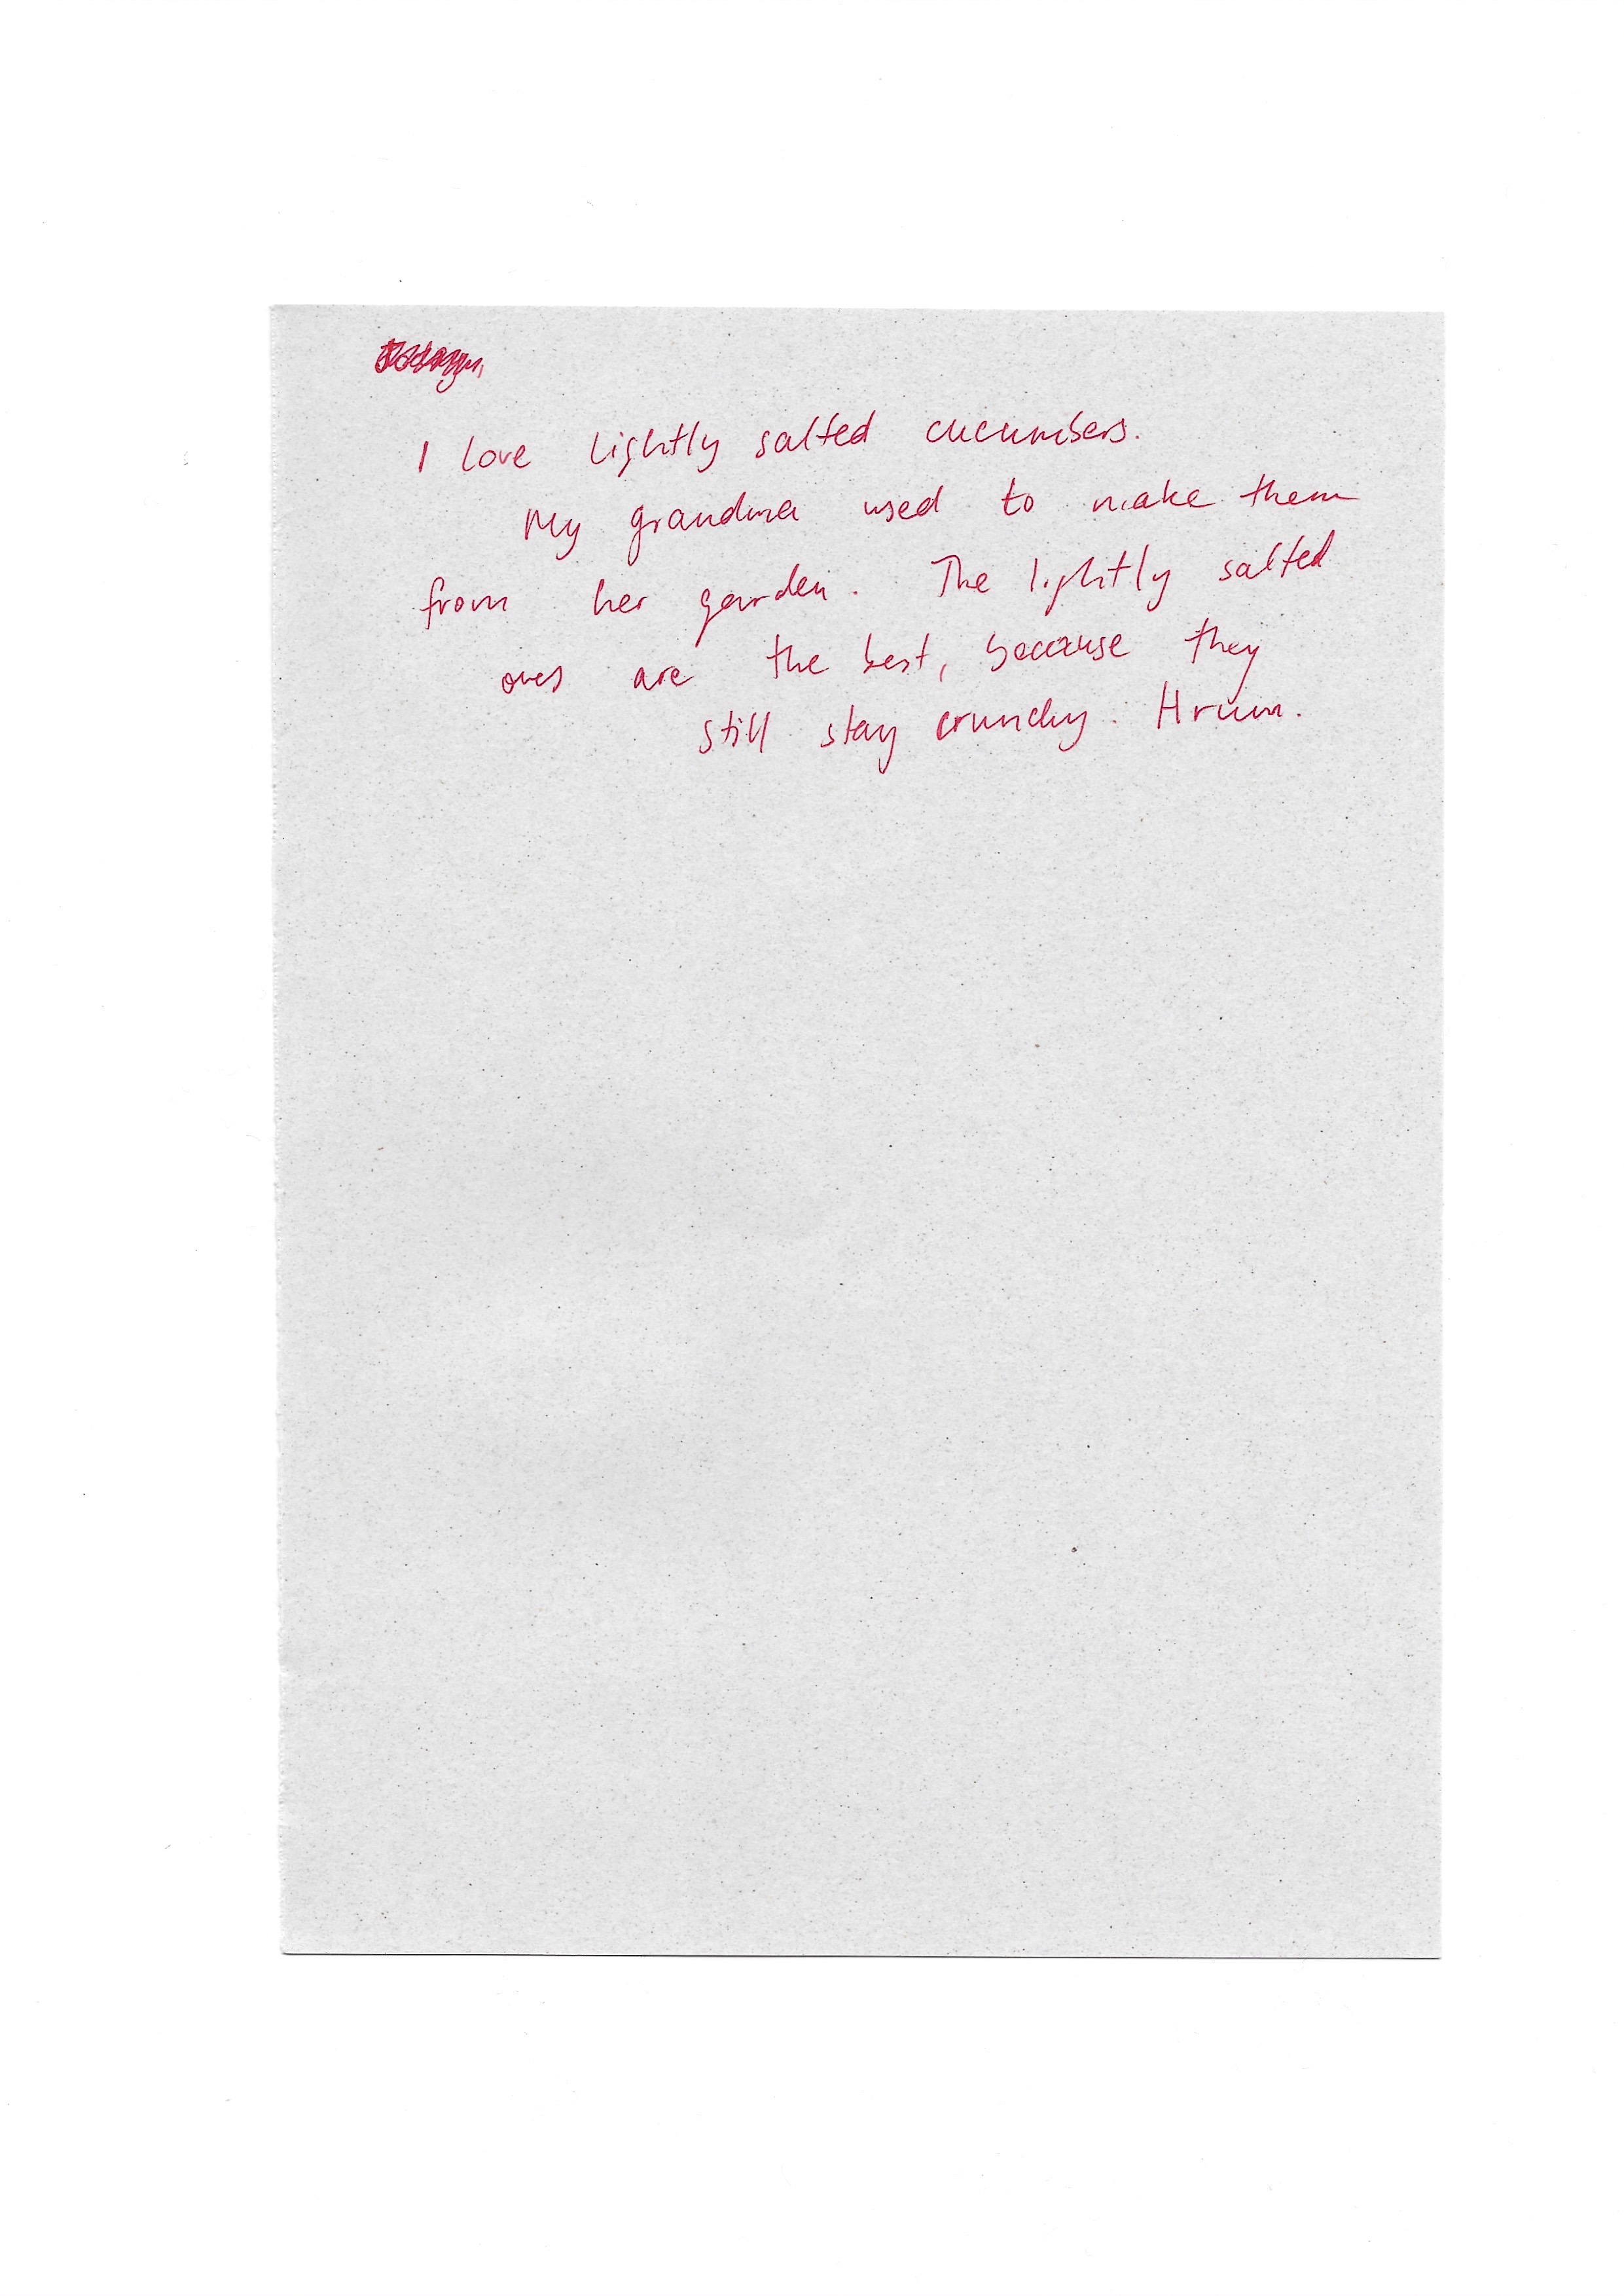 I love lightly salted cucumbers.
My grandma used to make them
from her garden. The lightly salted
ones are the best, because they
still stay crunchy. Hrum.